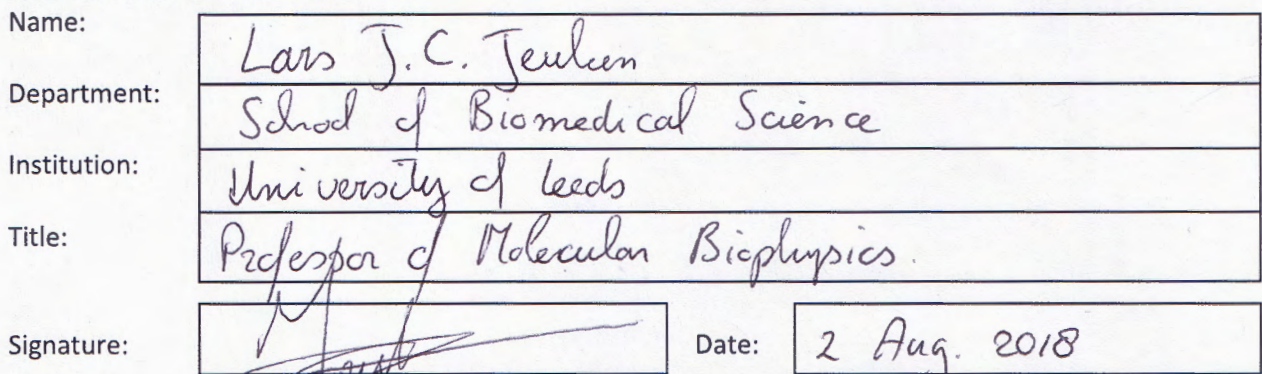 Name: Lars J.C. Jeuken
Department: School of Biomedical Science
Institution: University of Leeds
Title: Professor of Molecular Biophysics.
Signature: Date: 2 Aug. 2018